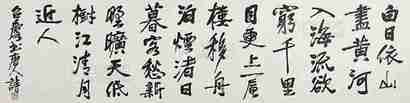 白日依山
盡黃河
入海流欲
窮千里
目更上一層
樓移舟
泊煙渚日
暮客愁新
野曠天低
樹江清月
近人
书唐人詩